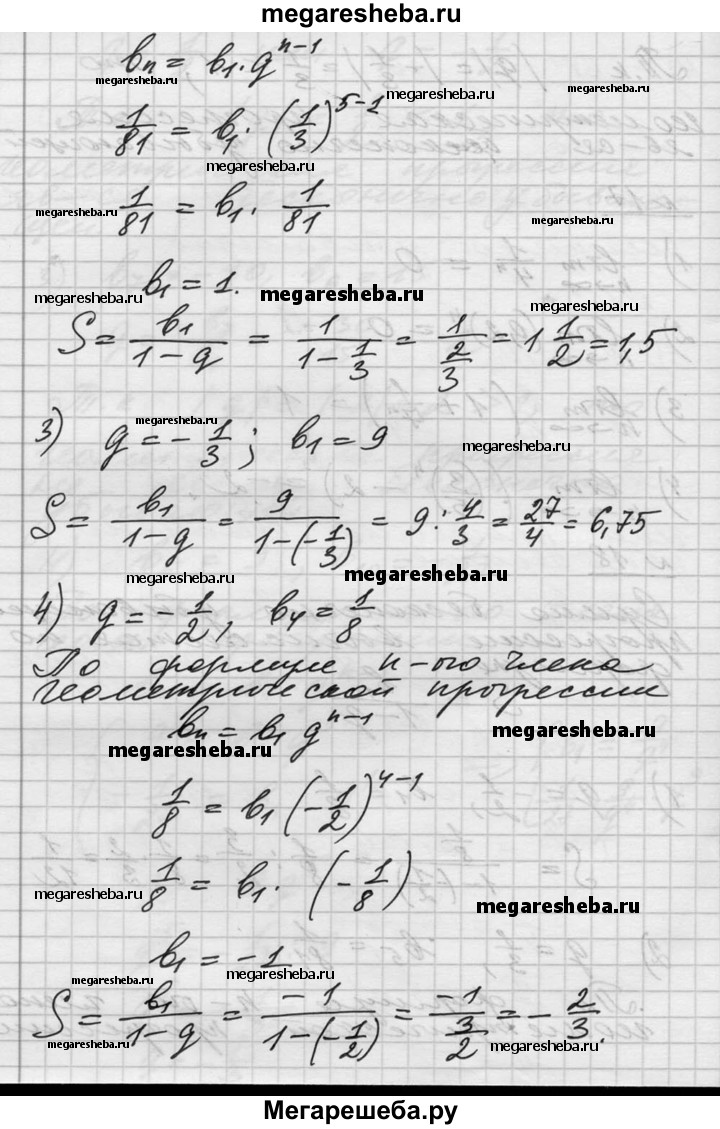 megaresheba.ru
bₙ = b₁ · q^(n-1)
megaresheba.ru megaresheba.ru
1/81 = b₁ · (1/3)^(5-1)
megaresheba.ru
megaresheba.ru 1/81 = b₁ · 1/81
b₁ = 1.
megaresheba.ru megaresheba.ru megaresheba.ru
S = b₁/(1-q) = 1/(1-1/3) = 1/(2/3) = 1 1/2 = 1,5
megaresheba.ru
3) q = -1/3; b₁ = 9
megaresheba.ru
S = b₁/(1-q) = 9/(1-(-1/3)) = 9 : 4/3 = 27/4 = 6,75
megaresheba.ru megaresheba.ru
4) q = -1/2, b₄ = 1/8
По формуле n-ого члена
геометрической прогрессии
bₙ = b₁ q^(n-1)
megaresheba.ru megaresheba.ru
1/8 = b₁ (-1/2)^(4-1)
1/8 = b₁ · (-1/8)
megaresheba.ru megaresheba.ru
b₁ = -1
megaresheba.ru megaresheba.ru
S = b₁/(1-q) = -1/(1-(-1/2)) = -1/(3/2) = -2/3.
megaresheba.ru megaresheba.ru
Мегарешеба.ру